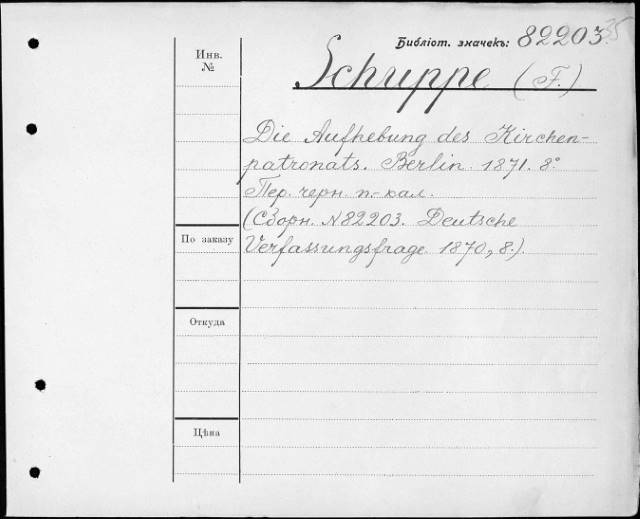 Библіот. значекъ: 82203. 35
Инв. №
Schuppe (F.)
Die Aufhebung des Kirchen-
patronats. Berlin. 1871. 8°
Пер. черн. п.-кал.
(Сборн. №82203. Deutsche
Verfassungsfrage 1870, 8.).
По заказу
Откуда
Цѣна